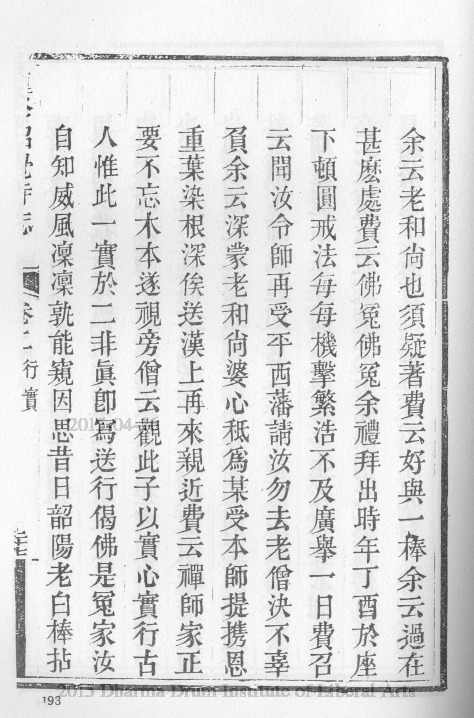 余云老和尚也須疑著費云好與一棒余云過在
甚麽處費云佛冤佛冤余禮拜出時年丁酉於座
下頓圓戒法每每機擊繁浩不及廣舉一日費召
云聞汝令師再受平西藩請汝勿去老僧決不辜
負余云深蒙老和尚婆心秪爲某受本師提攜恩
重葉染根深俟送漢上再來親近費云禪師家正
要不忘木本遂視旁僧云觀此子以實心實行古
人惟此一實於二非眞卽寫送行偈佛是冤家汝
自知威風凜凜孰能窺因思昔日韶陽老白棒拈
昭覺寺志
卷二
行實
193
2013 Dharma Drum Institute of Liberal Arts